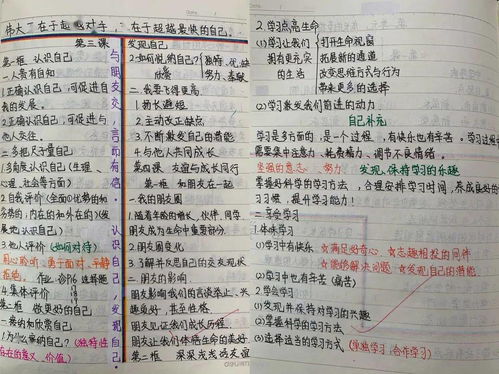 伟大 在于超越对手 在于超越最快的自己
第三课
第一框 认识自己
一人贵有自知
1.正确认识自己,可促进自我的发展。
2.正确认识自己,可促进与他人交往。
二.多把尺子量自己
1.多角度认识自己(生理、心理、社会等方面)
2.自我评价(全面
他人评价(如何对待)
用心聆听,勇于面对,平静拒绝
4.集体评价
第二框 做更好的自己
一.接纳和欣赏自己
1.为什么
存在的意义、价值)
与朋友交 言而有信
发现自己
2.如何悦
努力、奉献
二.我要飞得更高
1.扬长避短
2.主动改正缺点
3.不断激发自己的潜能
4.与他人共同成长
第四课 友谊与成长同行
第一框 和朋友在一起
一.我的朋友圈
1.随着年龄的增长,伙伴、同学、朋友成为生命中重要部分
2.朋友圈变化
3.了解并反思自己的交友现状
二.朋友的影响
朋友影响我们的言谈举止、兴趣爱好,甚至性格
朋友见证我们成长历程
朋友让我们体悟生命的美好
第二框 深深浅浅话友谊
2.学习点亮生命
(1)学习让我们拥有更充实的生活
打开生命视窗
拓展新的通道
改变思维方式与行为
带来更多的选择
(2)学习激发我们前进的动力
自己补充
学习是多方面的,是一个过程,有快乐也有辛苦。学习过程中需要集中注意力、耗费精力、调节不良情绪。
坚强的意志、努力
发现、保持学习的乐趣
掌握好科学的学习方法,合理安排学习时间,养成良好的学习习惯,提升学习能力!
二.享受学习
1.体味学习
(1)学习中有快乐 ☆满足好奇心 ☆志趣相投的同伴
☆能够解决问题 ☆发现自己的潜能
(2)学习中也有辛苦(痛苦)
2.学会学习
(1)发现并保持对学习的兴趣
(2)掌握科学的学习方法
(3)选择适当的学习方式(单独学习、合作学习)